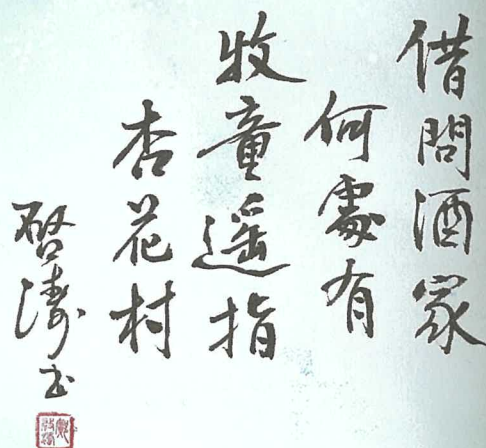 借問酒家
何處有
牧童遥指
杏花村
啓濤书